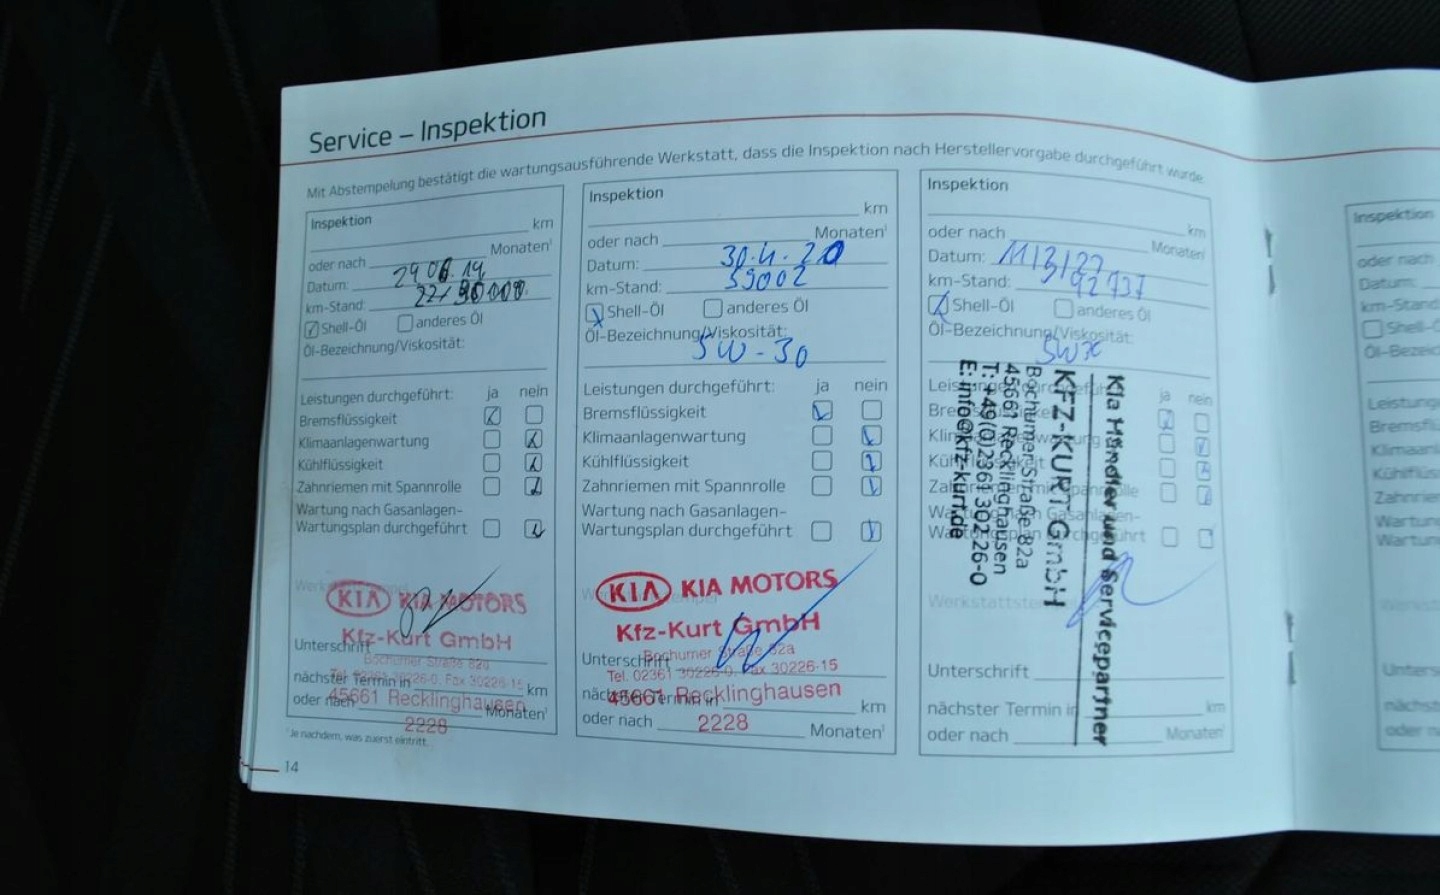 Service – Inspektion
Mit Abstempelung bestätigt die wartungsausführende Werkstatt, dass die Inspektion nach Herstellervorgabe durchgeführt wurde.
Inspektion
km
oder nach Monaten¹
Datum: 29 06. 19
km-Stand:
Shell-Öl anderes Öl
Öl-Bezeichnung/Viskosität:
Leistungen durchgeführt: ja nein
Bremsflüssigkeit
Klimaanlagenwartung
Kühlflüssigkeit
Zahnriemen mit Spannrolle
Wartung nach Gasanlagen-
Wartungsplan durchgeführt
KIA KIA MOTORS
Kfz-Kurt GmbH
Unterschrift
Bochumer Straße 82a
nächster Termin in km
Tel. 02361 30226-0. Fax 30226-15
oder nach Monaten¹
45661 Recklinghausen
2228
¹Je nachdem, was zuerst eintritt.
14
Inspektion
km
oder nach Monaten¹
Datum: 30.4.20
km-Stand: 59002
Shell-Öl anderes Öl
Öl-Bezeichnung/Viskosität:
5W-30
Leistungen durchgeführt: ja nein
Bremsflüssigkeit
Klimaanlagenwartung
Kühlflüssigkeit
Zahnriemen mit Spannrolle
Wartung nach Gasanlagen-
Wartungsplan durchgeführt
KIA KIA MOTORS
Kfz-Kurt GmbH
Unterschrift
Bochumer Straße 82a
Tel. 02361 30226-0. Fax 30226-15
nächster Termin in km
45661 Recklinghausen
oder nach Monaten¹
2228
Inspektion
km
oder nach Monaten¹
Datum:
km-Stand: 92737
Shell-Öl anderes Öl
Öl-Bezeichnung/Viskosität:
Leistungen durchgeführt: ja nein
Bremsflüssigkeit
Klimaanlagenwartung
Kühlflüssigkeit
Zahnriemen mit Spannrolle
Wartung nach Gasanlagen-
Wartungsplan durchgeführt
Kia Händler und Servicepartner
KFZ-KURT GmbH
Bochumer Straße 82a
45661 Recklinghausen
T: +49(0)2361 302 26-0
E: info@kfz-kurt.de
Werkstattstempel
Unterschrift
nächster Termin in km
oder nach Monaten¹
Inspektion
oder nach
Datum:
km-Stand:
Shell-Öl